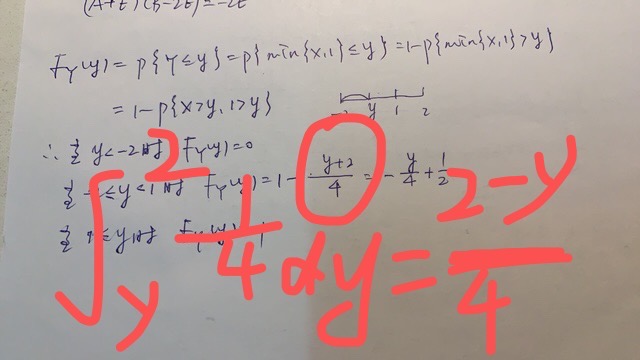 (A+E)(B-2E)=-2E
F_Y(y) = P{Y≤y} = P{min{X,1}≤y} = 1-P{min{X,1}>y}
= 1-P{X>y, 1>y}
-2 y 1 2
∴ 当 y<-2时 F_Y(y)=0
当 -2≤y<1时 F_Y(y)=1- \frac{y+2}{4} = -\frac{y}{4}+\frac{1}{2}
当 1≤y时 F_Y(y)=1
∫_y^2 \frac{1}{4} dy = \frac{2-y}{4}